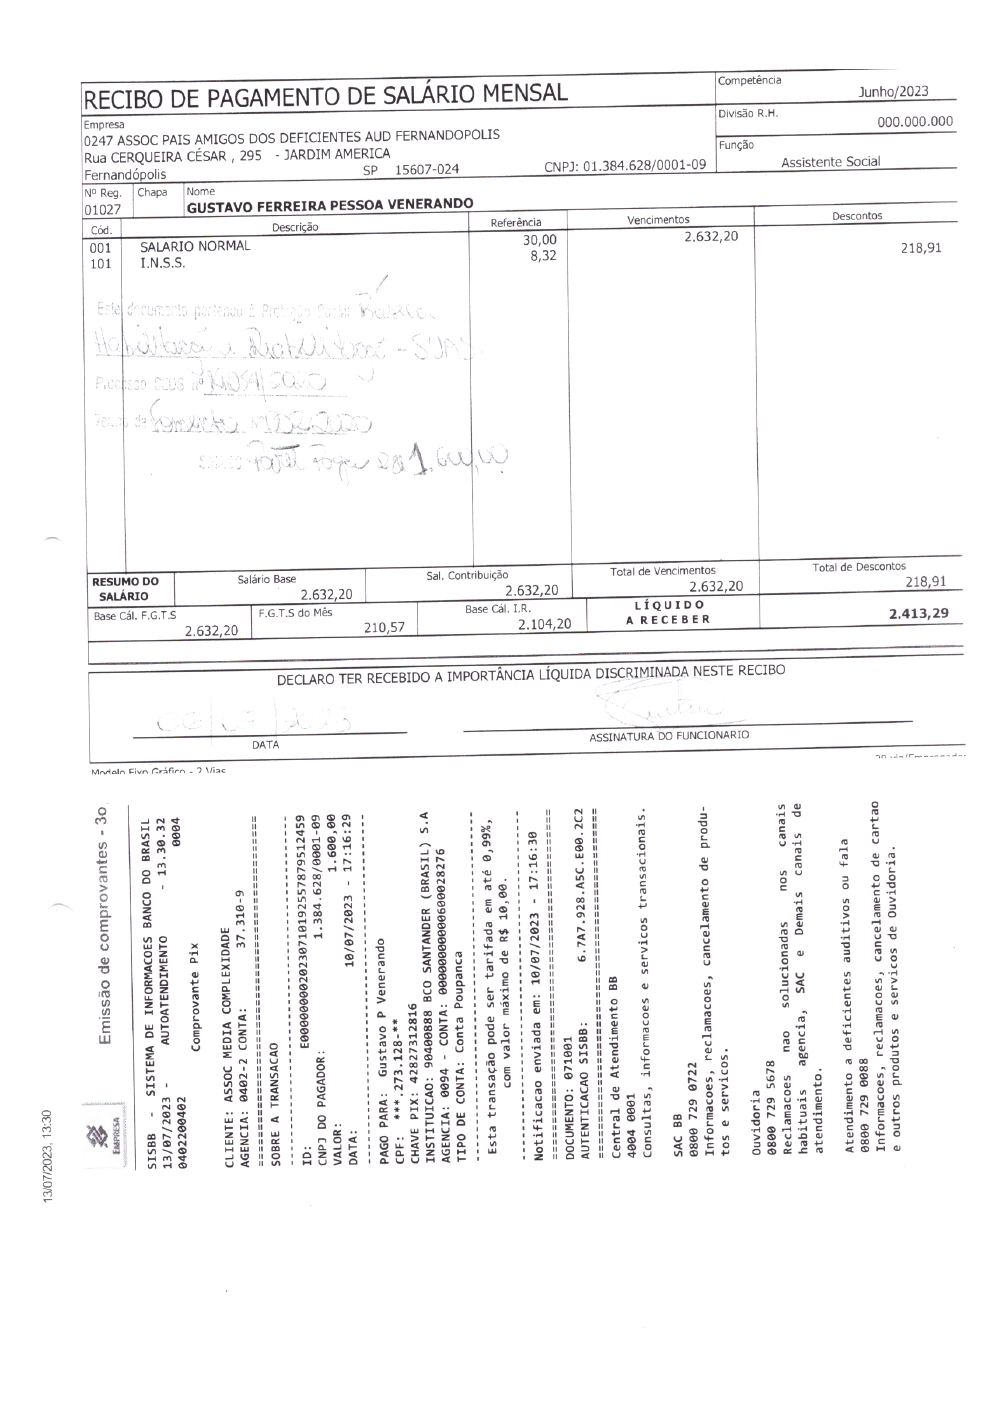 RECIBO DE PAGAMENTO DE SALÁRIO MENSAL
Competência
Junho/2023
Divisão R.H.
000.000.000
Função
Assistente Social
Empresa
0247 ASSOC PAIS AMIGOS DOS DEFICIENTES AUD FERNANDOPOLIS
Rua CERQUEIRA CÉSAR , 295 - JARDIM AMERICA
Fernandópolis SP 15607-024 CNPJ: 01.384.628/0001-09
Nº Reg. Chapa Nome
01027 GUSTAVO FERREIRA PESSOA VENERANDO
Cód. Descrição Referência Vencimentos Descontos
001 SALARIO NORMAL 30,00 2.632,20
101 I.N.S.S. 8,32 218,91
Este documento pertence à Proteção Social
Habilitação e Reabilitação - SUAS
Processo
RESUMO DO SALÁRIO
Salário Base
2.632,20
Sal. Contribuição
2.632,20
Total de Vencimentos
2.632,20
Total de Descontos
218,91
Base Cál. F.G.T.S
2.632,20
F.G.T.S do Mês
210,57
Base Cál. I.R.
2.104,20
LÍQUIDO A RECEBER
2.413,29
DECLARO TER RECEBIDO A IMPORTÂNCIA LÍQUIDA DISCRIMINADA NESTE RECIBO
DATA
ASSINATURA DO FUNCIONARIO
Modelo Fixo Gráfico - 2 Vias
13/07/2023, 13:30
EMPRESA
Emissão de comprovantes - 3o
SISBB - SISTEMA DE INFORMACOES BANCO DO BRASIL
13/07/2023 - AUTOATENDIMENTO - 13.30.32
0402200402 0004
Comprovante Pix
CLIENTE: ASSOC MEDIA COMPLEXIDADE
AGENCIA: 0402-2 CONTA: 37.310-9
SOBRE A TRANSACAO
ID: E0000000020230710192557879512459
CNPJ DO PAGADOR: 1.384.628/0001-09
VALOR: 1.600,00
DATA: 10/07/2023 - 17:16:29
PAGO PARA: Gustavo P Venerando
CPF: ***.273.128-**
CHAVE PIX: 42827312816
INSTITUICAO: 90400888 BCO SANTANDER (BRASIL) S.A
AGENCIA: 0094 - CONTA: 00000000000600028276
TIPO DE CONTA: Conta Poupanca
Esta transação pode ser tarifada em até 0,99%,
com valor máximo de R$ 10,00.
Notificacao enviada em: 10/07/2023 - 17:16:30
DOCUMENTO: 071001
AUTENTICACAO SISBB: 6.7A7.928.A5C.E00.2C2
Central de Atendimento BB
4004 0001
Consultas, informacoes e servicos transacionais.
SAC BB
0800 729 0722
Informacoes, reclamacoes, cancelamento de produ-
tos e servicos.
Ouvidoria
0800 729 5678
Reclamacoes nao solucionadas nos canais
habituais agencia, SAC e Demais canais de
atendimento.
Atendimento a deficientes auditivos ou fala
0800 729 0088
Informacoes, reclamacoes, cancelamento de cartao
e outros produtos e servicos de Ouvidoria.